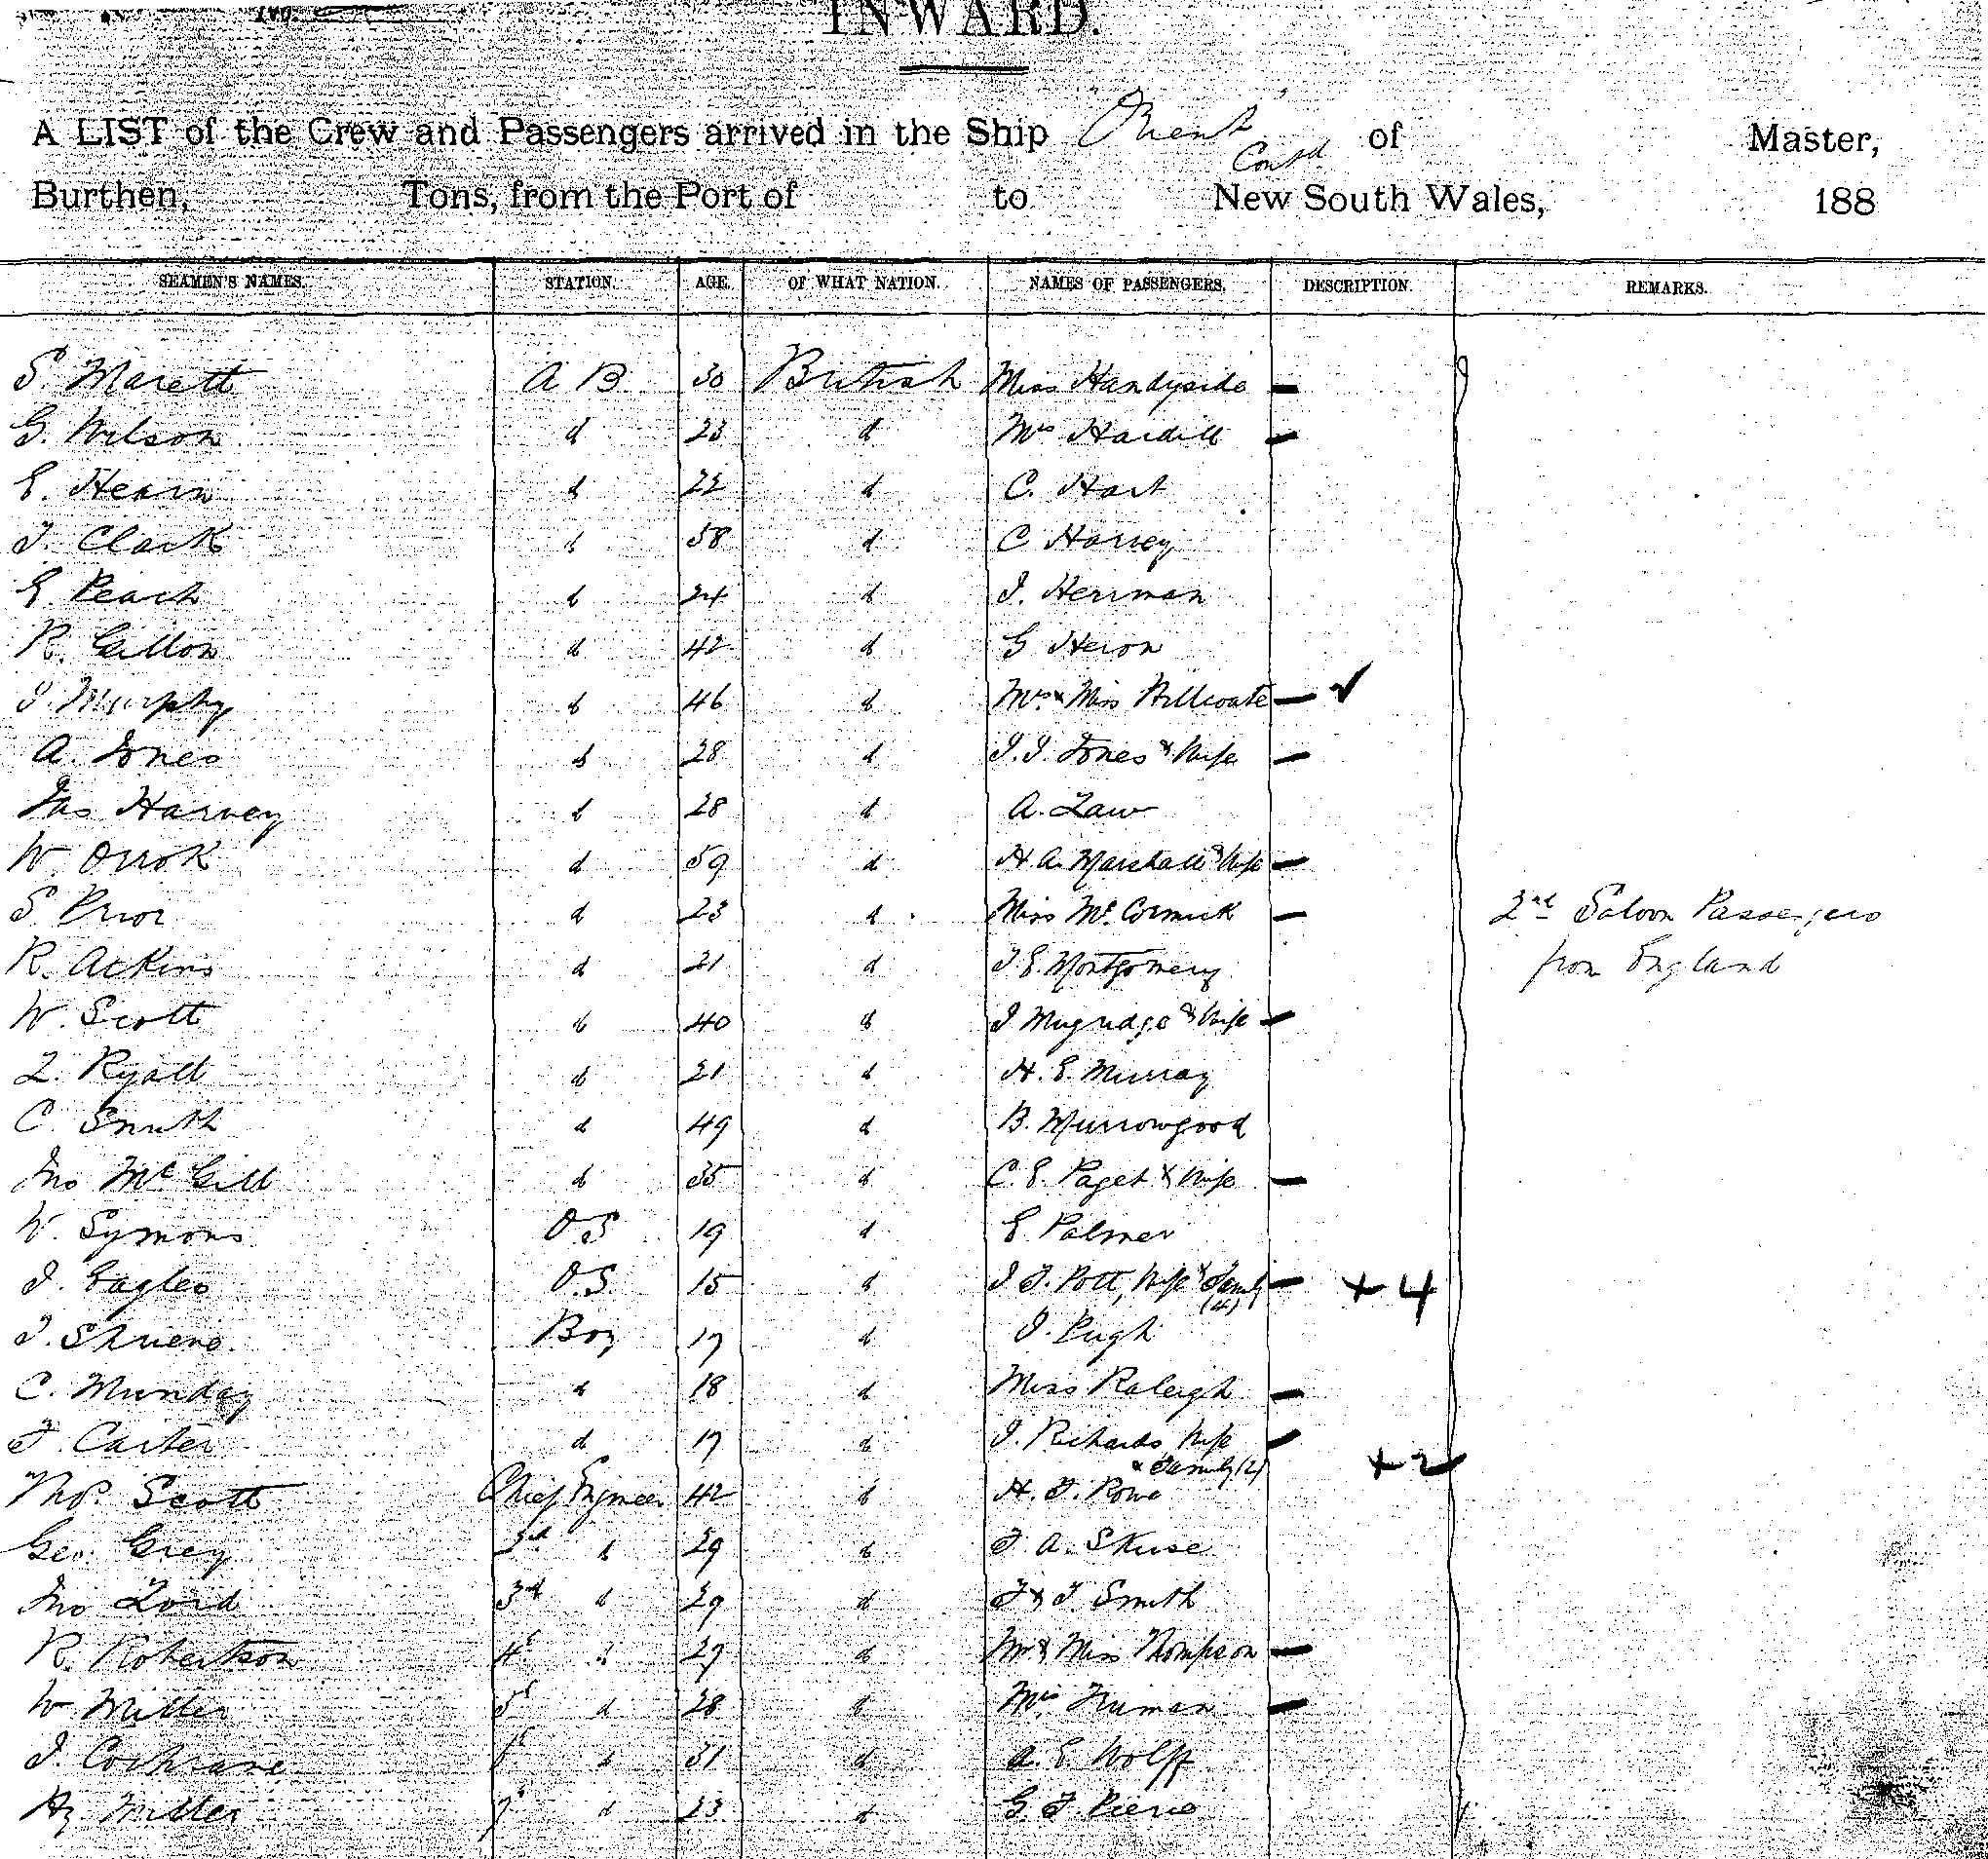 INWARD.
A LIST of the Crew and Passengers arrived in the Ship "Orient" Contd of Master,
Burthen, Tons, from the Port of to New South Wales, 188
SEAMEN'S NAMES. STATION. AGE. OF WHAT NATION. NAMES OF PASSENGERS. DESCRIPTION. REMARKS.
S. Marett A B 30 British Miss Handyside —
G. Wilson d 23 d Mrs Hardill —
E. Hearn d 22 d C. Hart
J. Clark d 58 d C Harvey
E. Peach d 24 d J. Herrman
R. Gillon d 42 d G Heron
J. Murphy d 46 d Mrs & Miss Hillcoate — ✓
A. Jones d 28 d J. J. Jones & Wife —
Jas Harvey d 28 d A. Law
W. Orrok d 59 d H. A. Marshall & Wife —
S. Prior d 23 d Miss McCormick — 2nd Saloon Passengers
R. Atkins d 21 d J. E. Montgomery from England
W. Scott d 40 d J Mugridge & Wife —
L. Ryall d 21 d H. E. Murray
C. Smith d 49 d B. Murrowgood
Jno McGill d 35 d C. E. Paget & Wife —
W. Symons O.S 19 d E. Palmer
J. Eagles O.S. 15 d J. F. Pott, Wife & Family (4) — + 4
J. Boy 17 d J. Pugh
C. Munday d 18 d Miss Raleigh —
F. Carter d 17 d J. Richards, Wife & Family (2) — + 2
Thos. Scott Chief Engineer 42 d H. F. Rowe
Geo. Grey d 29 d F. A. Skuse
Jno Lord 3rd d 29 d F & J. Smith
R. Robertson 4th d 27 d Mr & Miss Thompson —
W Miller 5th d 28 d Mrs Truman —
J. Cochrane d 31 d A. E. Wolff
Hy Miller 7th d 23 d G. F. Pierce